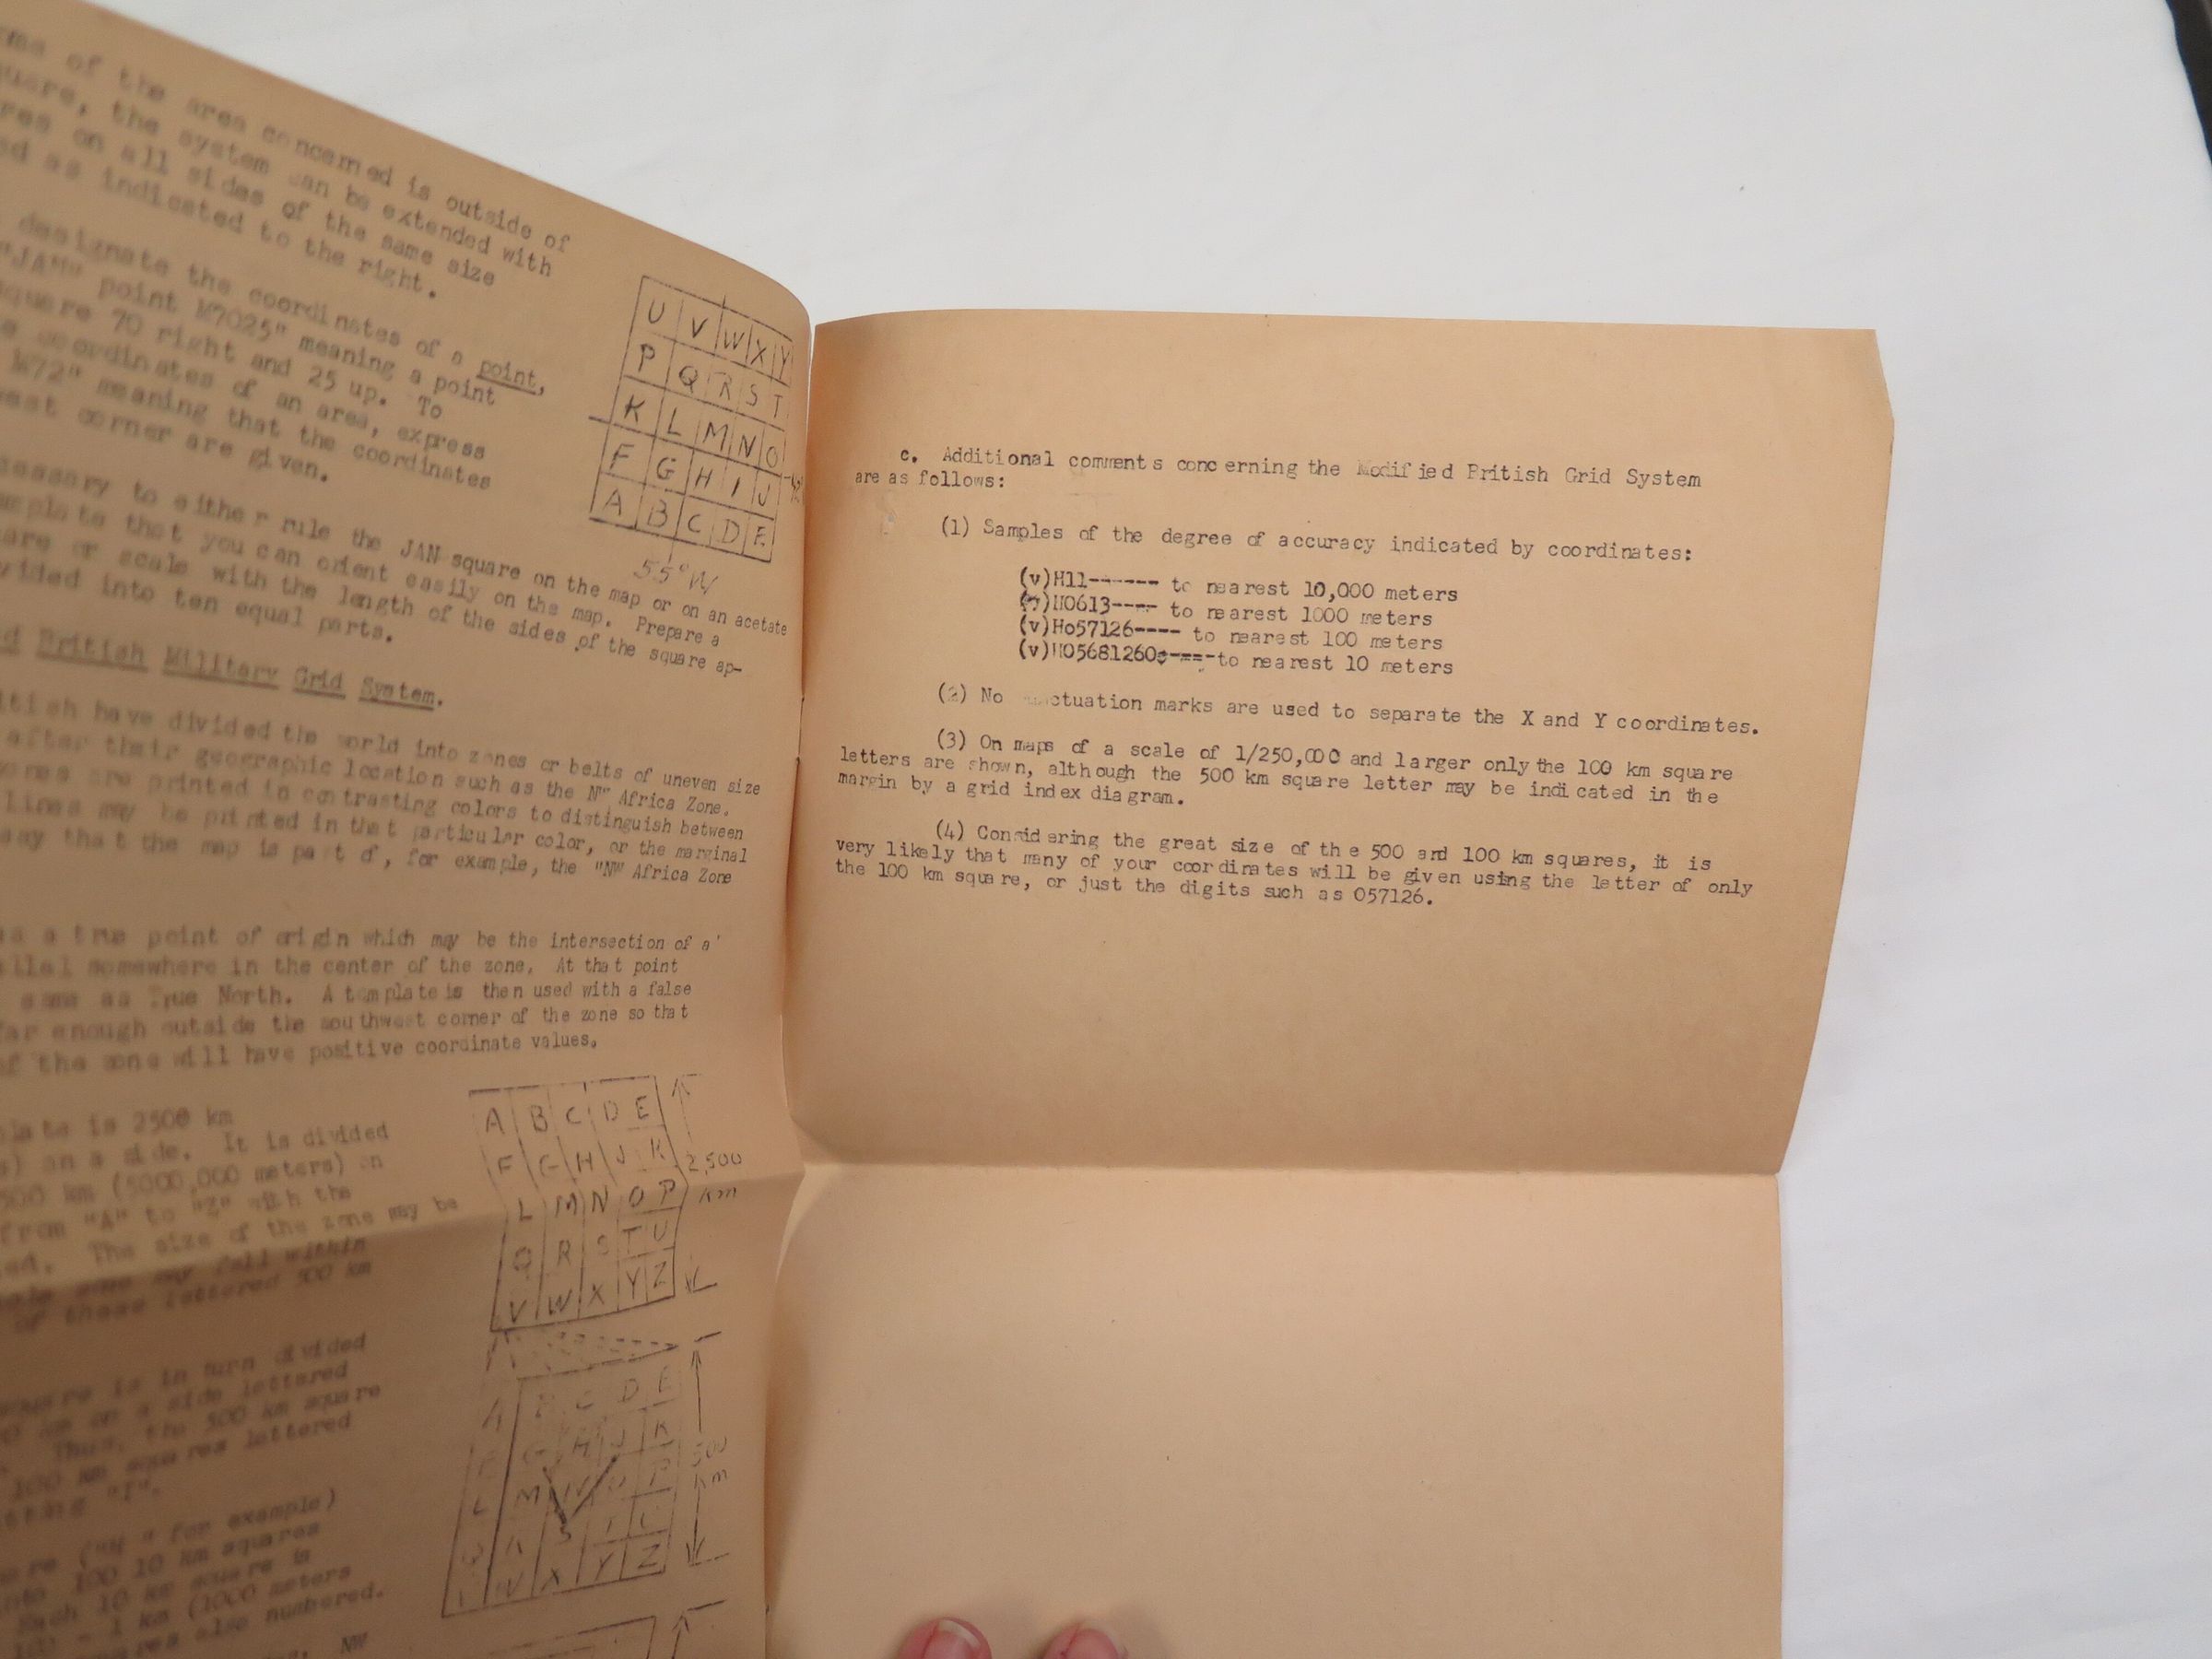 of the area concerned is outside of
the system can be extended with
on all sides of the same size
as indicated to the right.
designate the coordinates of a point,
"JAN" point M7025" meaning a point
square 70 right and 25 up. To
coordinates of an area, express
M72" meaning that the coordinates
corner are given.
U V W X Y
P Q R S T
K L M N O
F G H I J
A B C D E
55°W
to either rule the JAN square on the map or on an acetate
that you can orient easily on the map. Prepare a
or scale with the length of the sides of the square ap-
into ten equal parts.
British Military Grid System.
have divided the world into zones or belts of uneven size
after their geographic location such as the NW Africa Zone.
are printed in contrasting colors to distinguish between
lines may be printed in that particular color, or the marginal
say that the map is part of, for example, the "NW Africa Zone
a true point of origin which may be the intersection of a
somewhere in the center of the zone. At that point
same as True North. A template is then used with a false
far enough outside the southwest corner of the zone so that
of the zone will have positive coordinate values.
is 2500 km
on a side. It is divided
500 km (5000,000 meters) on
from "A" to "Z" with the
The size of the zone may be
zone may fall within
of these lettered 500 km
A B C D E
F G H J K
L M N O P
Q R S T U
V W X Y Z
2,500
km
is in turn divided
km on a side lettered
Thus, the 500 km square
100 km squares lettered
"I".
("H" for example)
100 10 km squares
Each 10 km square is
1 km (1000 meters
also numbered.
NW
A B C D E
G H J K
L M N O P
W X Y Z
500
km
c. Additional comments conc erning the Modif ied British Grid System
are as follows:
(1) Samples of the degree of accuracy indicated by coordinates:
(v)H11------ to nearest 10,000 meters
(v)H0613---- to nearest 1000 meters
(v)Ho57126---- to nearest 100 meters
(v)H05681260----to nearest 10 meters
(2) No ctuation marks are used to separate the X and Y coordinates.
(3) On maps of a scale of 1/250,000 and larger only the 100 km square
letters are shown, although the 500 km square letter may be indicated in the
margin by a grid index diagram.
(4) Considering the great size of the 500 and 100 km squares, it is
very likely that many of your coordinates will be given using the letter of only
the 100 km square, or just the digits such as 057126.